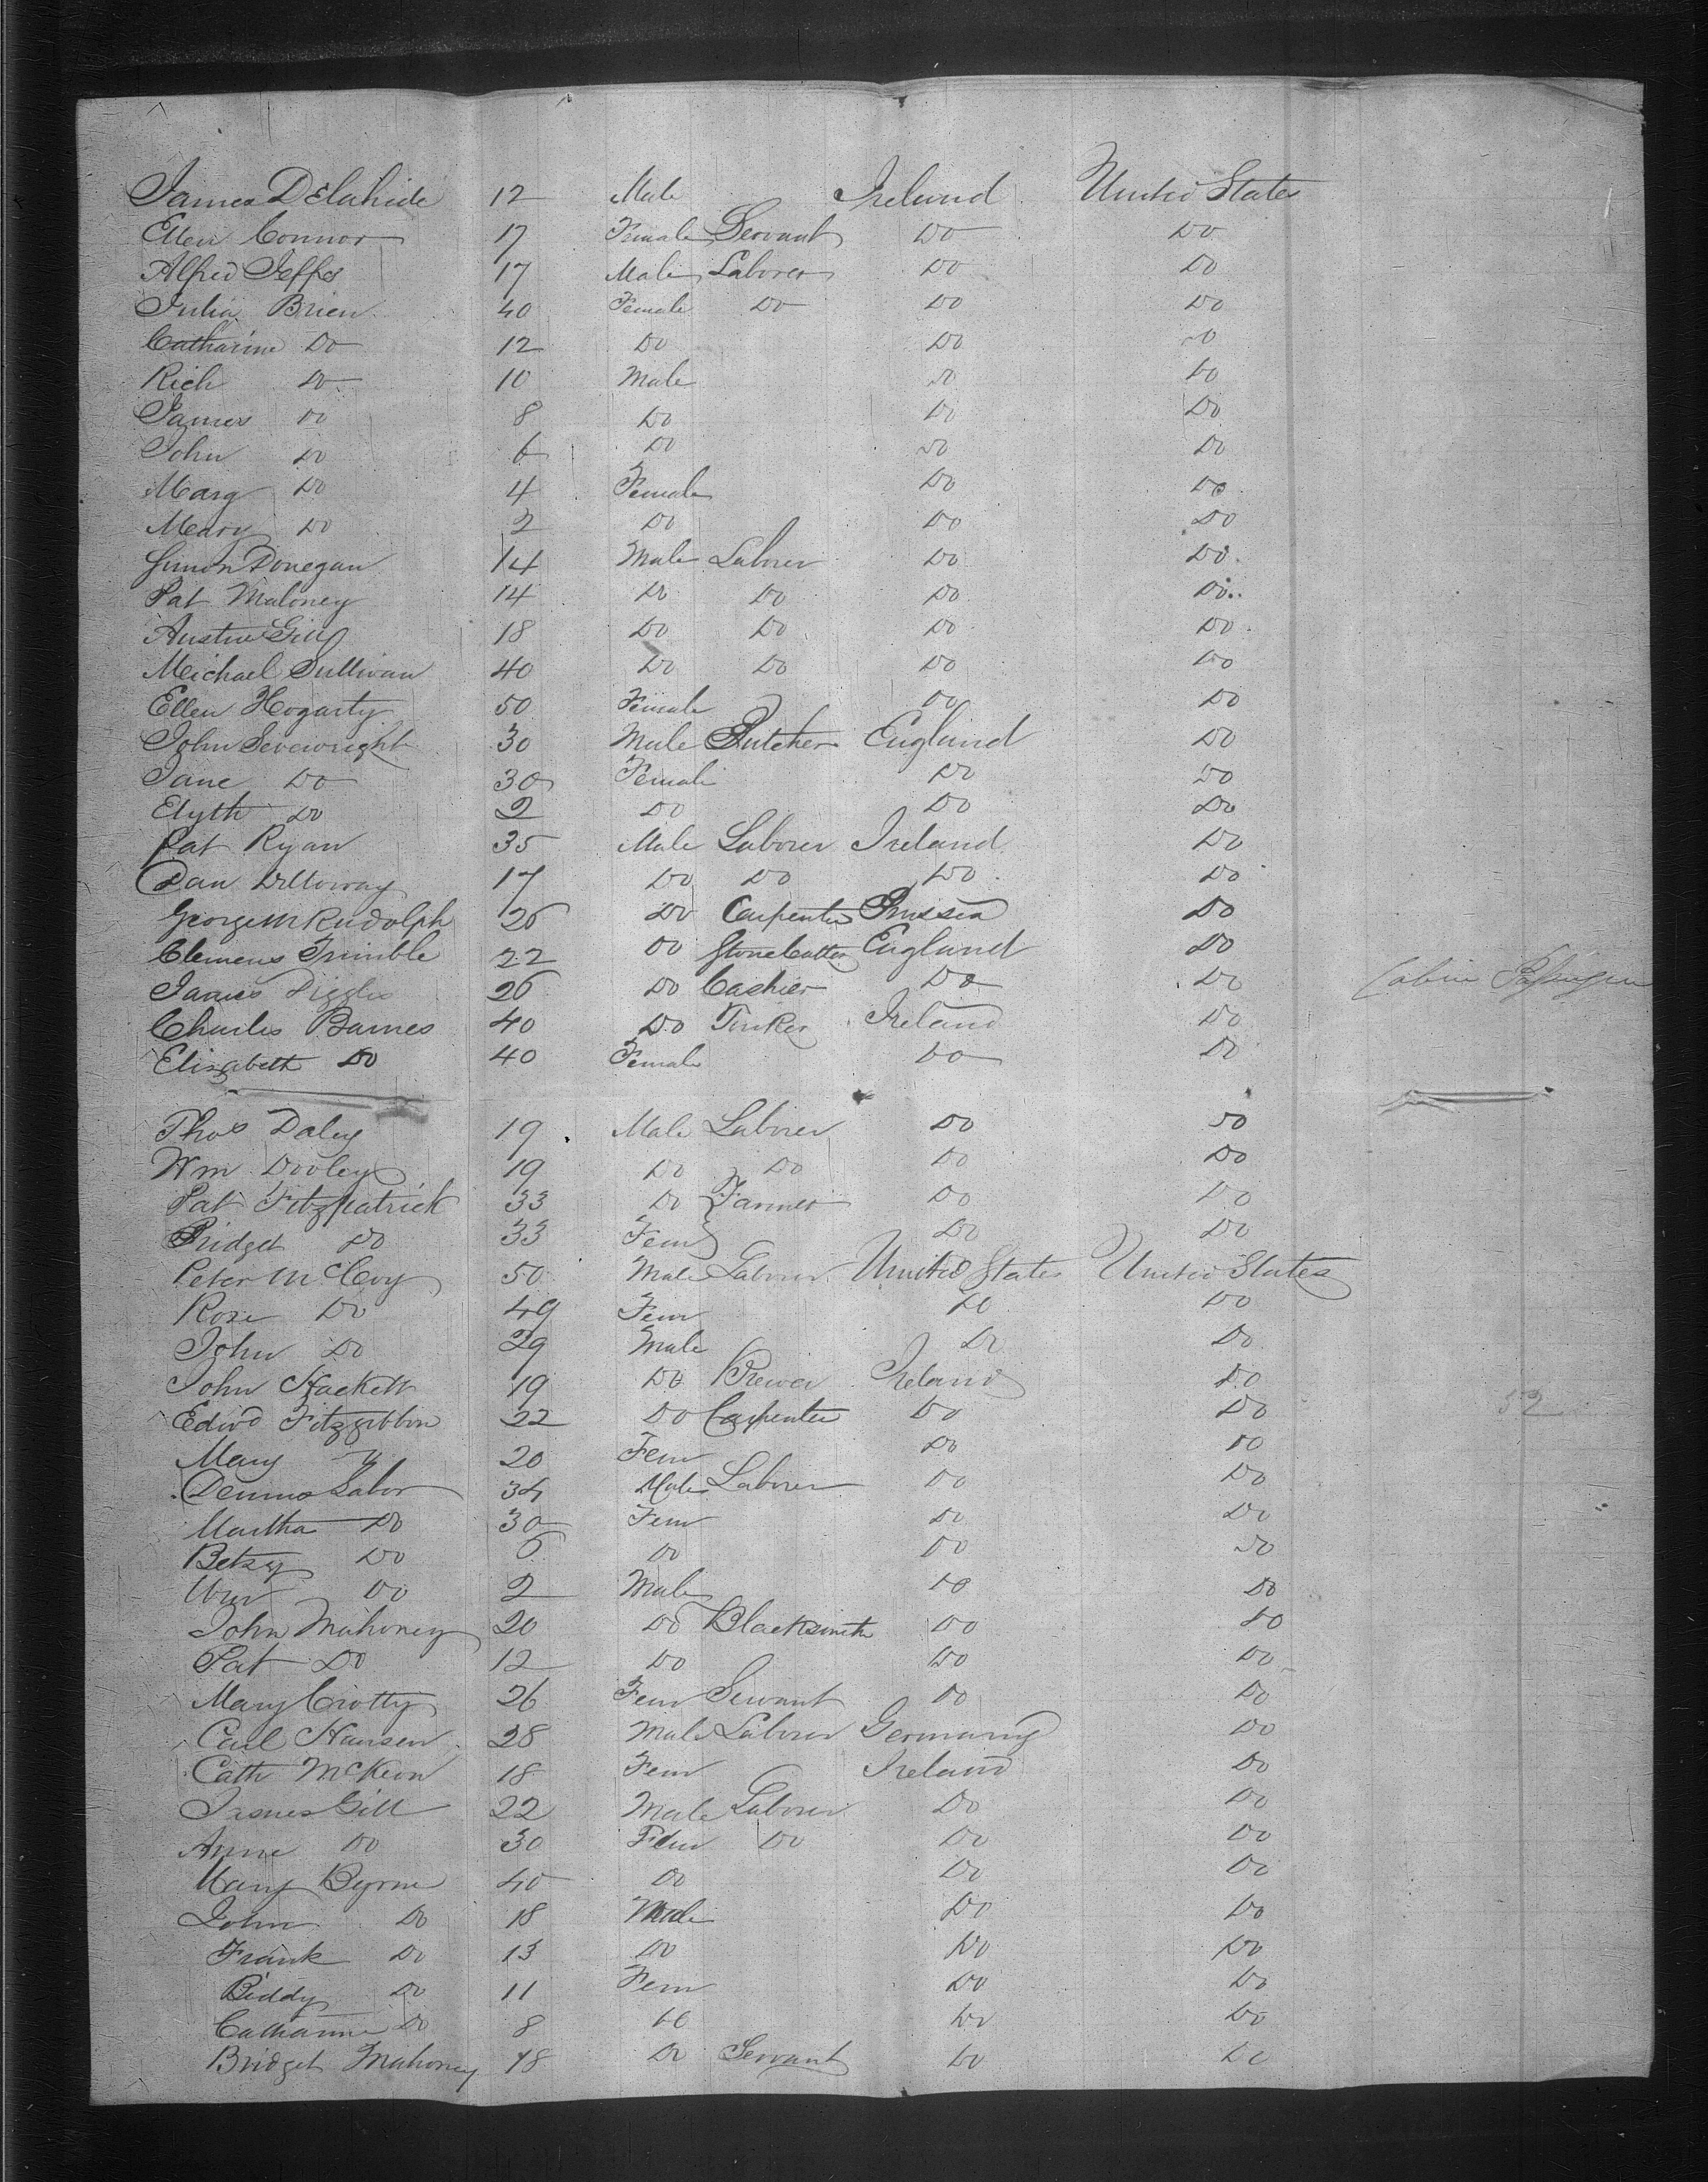 James DElahide 12 Male Ireland United States
Ellen Connor 17 Female Servant Do Do
Alfred Jeffes 17 Male Laborer Do Do
Julia Brien 40 Female Do Do Do
Catharine Do 12 Do Do Do
Rich Do 10 Male Do Do
James Do 8 Do Do Do
John Do 6 Do Do Do
Marg Do 4 Female Do Do
Meary Do 2 Do Do Do
Simon Donegan 14 Male Laborer Do Do
Pat Maloney 14 Do Do Do Do
Austin Gill 18 Do Do Do Do
Michael Sullivan 40 Do Do Do Do
Ellen Hogarty 50 Female Do Do
John Sevewright 30 Male Butcher England Do
Jane Do 30 Female Do Do
Elyth Do 2 Do Do Do
Pat Ryan 35 Male Laborer Ireland Do
Dan 17 Do Do Do Do
George M Rudolph 26 Do Carpenter Prussia Do
Clemens Trimble 22 Do Stone Cutter England Do
James Diggles 26 Do Cashier Do Do Cabin Passenger
Charles Barnes 40 Do Tinker Ireland Do
Elizabeth Do 40 Female Do Do
Thos Daley 19 Male Laborer Do Do
Wm Dooley 19 Do Do Do Do
Pat Fitzpatrick 33 Do Farmer Do Do
Bridget Do 33 Fem Do Do
Peter McCoy 50 Male Laborer United States United States
Rose Do 49 Fem Do Do
John Do 29 Male Do Do
John Hackett 19 Do Brewer Ireland Do
Edwd Fitzgibbon 22 Do Carpenter Do Do 52
Mary 20 Fem Do Do
Dennis Labor 34 Male Laborer Do Do
Martha Do 30 Fem Do Do
Betsy Do 6 Do Do Do
Wm Do 2 Male Do Do
John Mahoney 20 Do Blacksmith Do Do
Pat Do 12 Do Do Do
Mary Crotty 26 Fem Servant Do Do
Carl Hansen 28 Male Laborer Germany Do
Cath McKeon 18 Fem Ireland Do
James Gill 22 Male Laborer Do Do
Anne Do 30 Fem Do Do Do
Mary Byrne 40 Do Do Do
John Do 18 Male Do Do
Frank Do 13 Do Do Do
Biddy Do 11 Fem Do Do
Catharine Do 8 Do Do Do
Bridget Mahoney 18 Do Servant Do Do